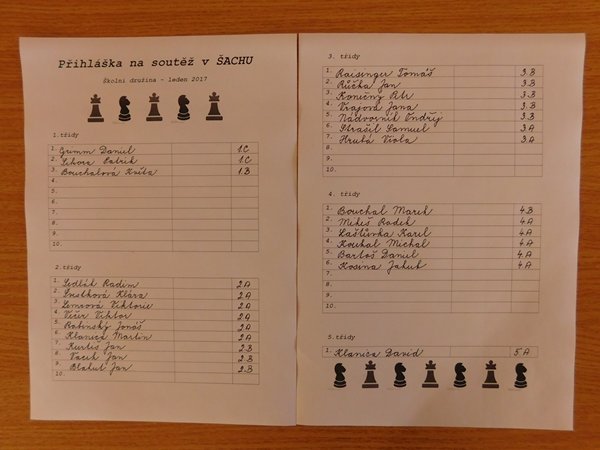 Přihláška na soutěž v ŠACHU
Školní družina - leden 2017
1. třídy
1. Gumm Daniel 1.C
2. Sikora Patrik 1.C
3. Bouchalová Květa 1.B
4.
5.
6.
7.
8.
9.
10.
2. třídy
1. Sedlák Radim 2.A
2. Klára 2.A
3. Viktorie 2.A
4. Viktor 2.A
5. Rabinský Jonáš 2.A
6. Klanica Martin 2.A
7. Kurtis Jan 2.B
8. Vacek Jan 2.B
9. Blahut Jan 2.B
10.
3. třídy
1. Raisinger Tomáš 3.B
2. Růčka Jan 3.B
3. Konečný Petr 3.B
4. Vrajová Jana 3.B
5. Nádvorník Ondřej 3.B
6. Strašil Samuel 3.A
7. Hrubá Viola 3.A
8.
9.
10.
4. třídy
1. Bouchal Marek 4.B
2. Mikeš Radek 4.A
3. Laštůvka Karel 4.A
4. Koukal Michal 4.A
5. Bartoš Daniel 4.A
6. Kosina Jakub 4.A
7.
8.
9.
10.
5. třídy
1. Klanica David 5.A